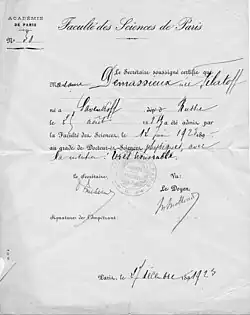 Faculté des Sciences de Paris
ACADÉMIE
DE PARIS
N°
Le Secrétaire soussigné certifie que
Madame Demassieux née
né à dépt d Russie
le 25 août 18 a été admis par
la Faculté des Sciences, le 12 juin 1923
au grade de Docteur ès Sciences physiques, avec
la mention : très honorable.
Le Secrétaire, Vu:
Le Doyen,
Signature de l'Impétrant.
Paris, le 27 décembre 1923